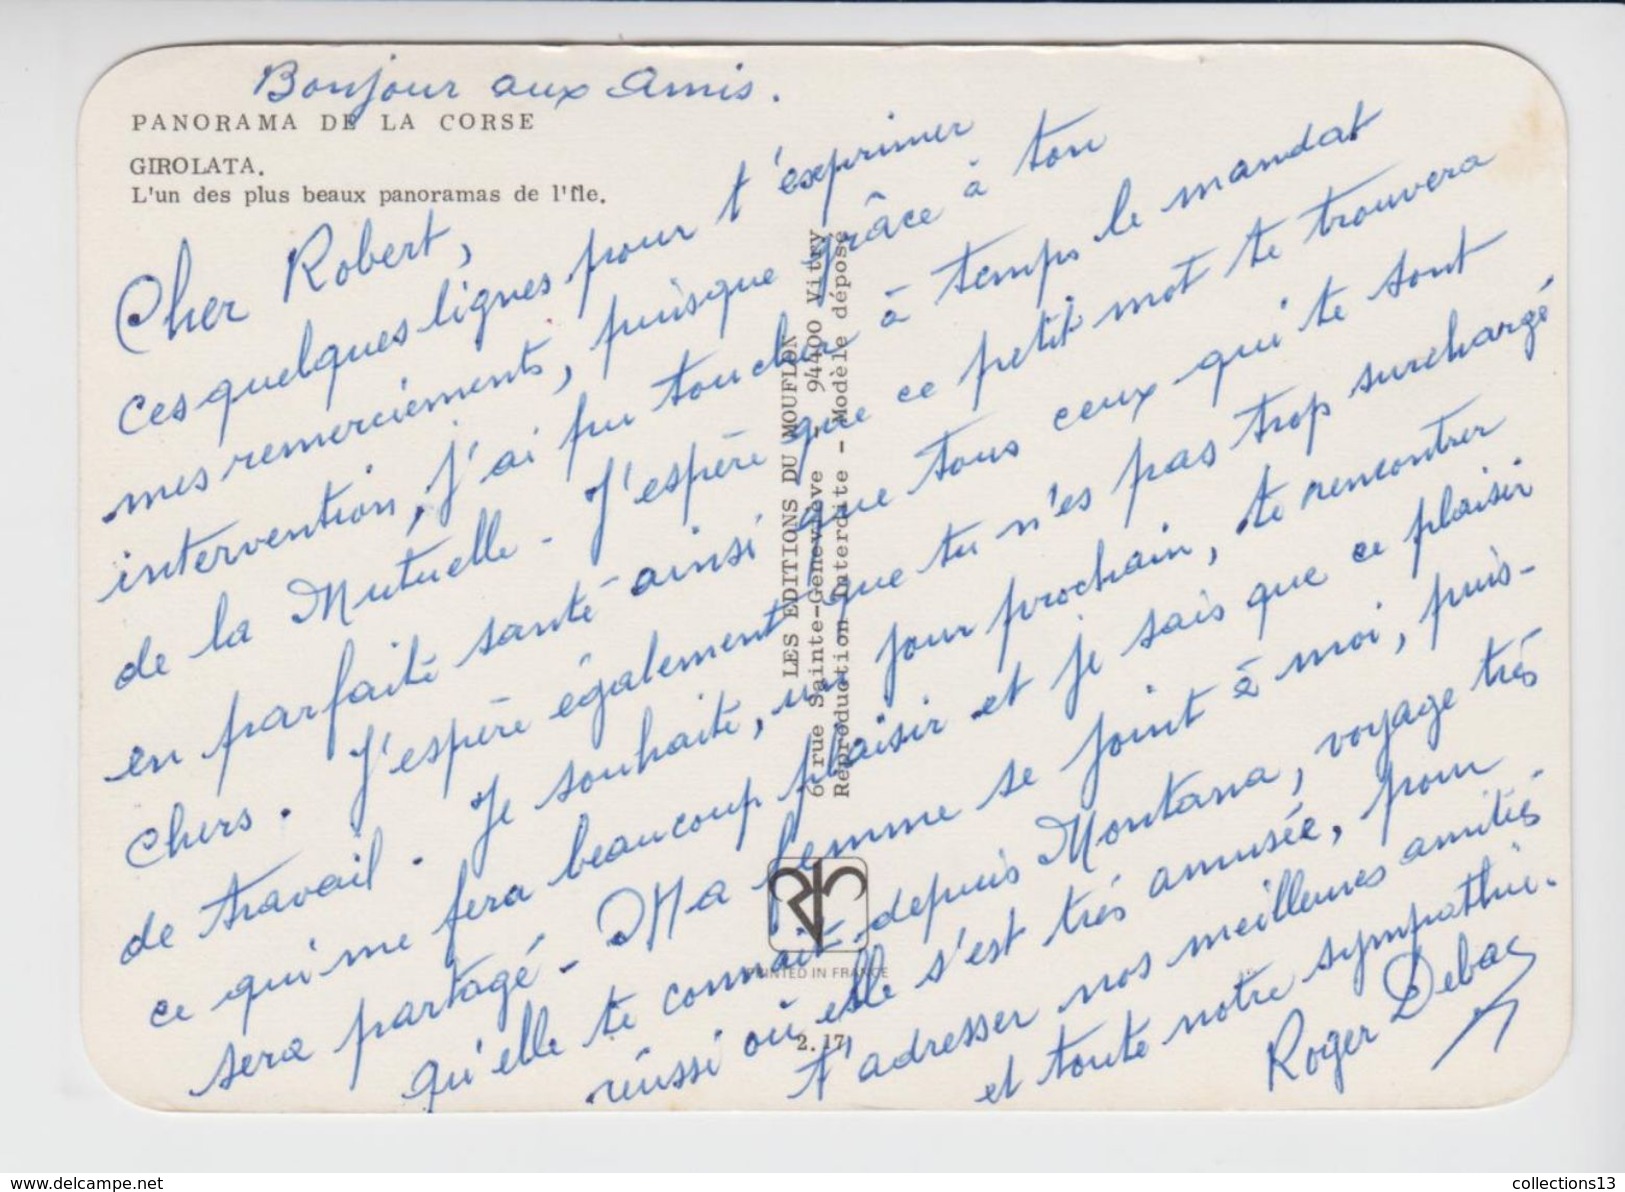 Bonjour aux Amis.
PANORAMA DE LA CORSE
GIROLATA.
L'un des plus beaux panoramas de l'île.
Cher Robert,
ces quelques lignes pour t'exprimer
mes remerciements, puisque grâce à ton
intervention, j'ai pu toucher à temps le mandat
de la Mutuelle - J'espère que ce petit mot te trouvera
en parfaite santé ainsi que tous ceux qui te sont
chers. J'espère également que tu n'es pas trop surchargé
de travail. Je souhaite, un jour prochain, te rencontrer
ce qui me fera beaucoup plaisir et je sais que ce plaisir
sera partagé - Ma femme se joint à moi, puis-
qu'elle te connait depuis Montana, voyage très
réussi où elle s'est très amusée, pour
t'adresser nos meilleures amitiés
et toute notre sympathie.
Roger Debac
LES EDITIONS DU MOUFLON
6 rue Sainte-Geneviève - 94400 Vitry
Reproduction Interdite - Modèle déposé
PRINTED IN FRANCE
2.17
delcampe.net
collections13